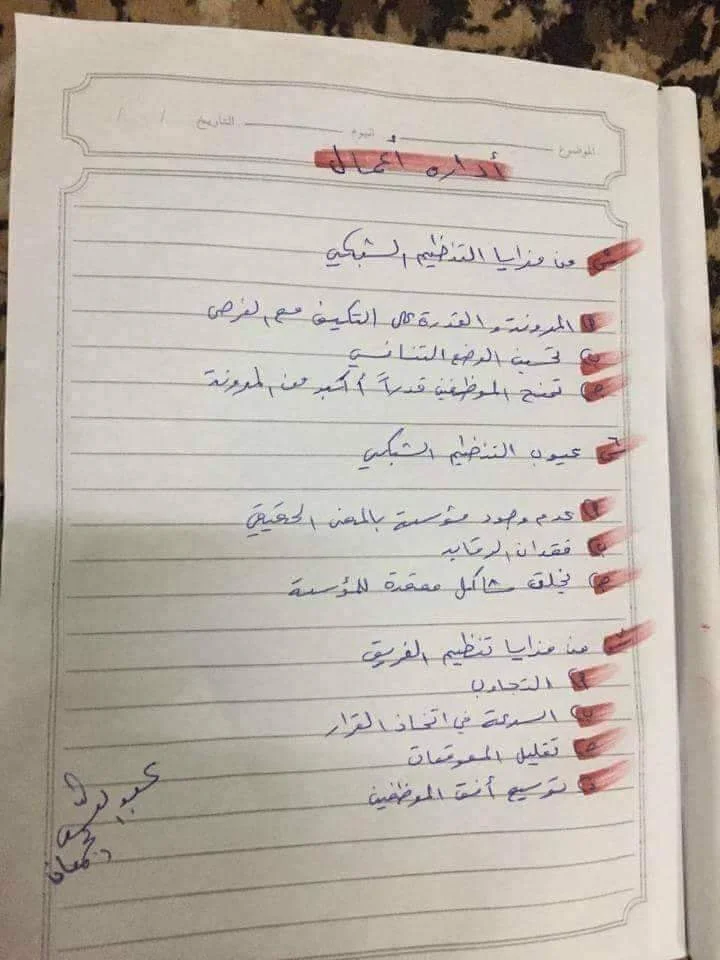 الموضوع اليوم التاريخ / /
أداره أعمال
س من مزايا التنظيم الشبكي
أ المرونة و القدرة على التكيف مع الفرص
ب تحسين الوضع التنافسي
ج تمنح الموظفين قدراً أكبر من المرونة
س عيوب التنظيم الشبكي
أ عدم وجود مؤسسة بالمعنى الحقيقي
ب فقدان الرقابه
ج يخلق مشاكل معقدة للمؤسسة
س من مزايا تنظيم الفريق
أ التجاوب
ب السرعة في اتخاذ القرار
ج تقليل المعوقات
د توسيع أفق الموظفين